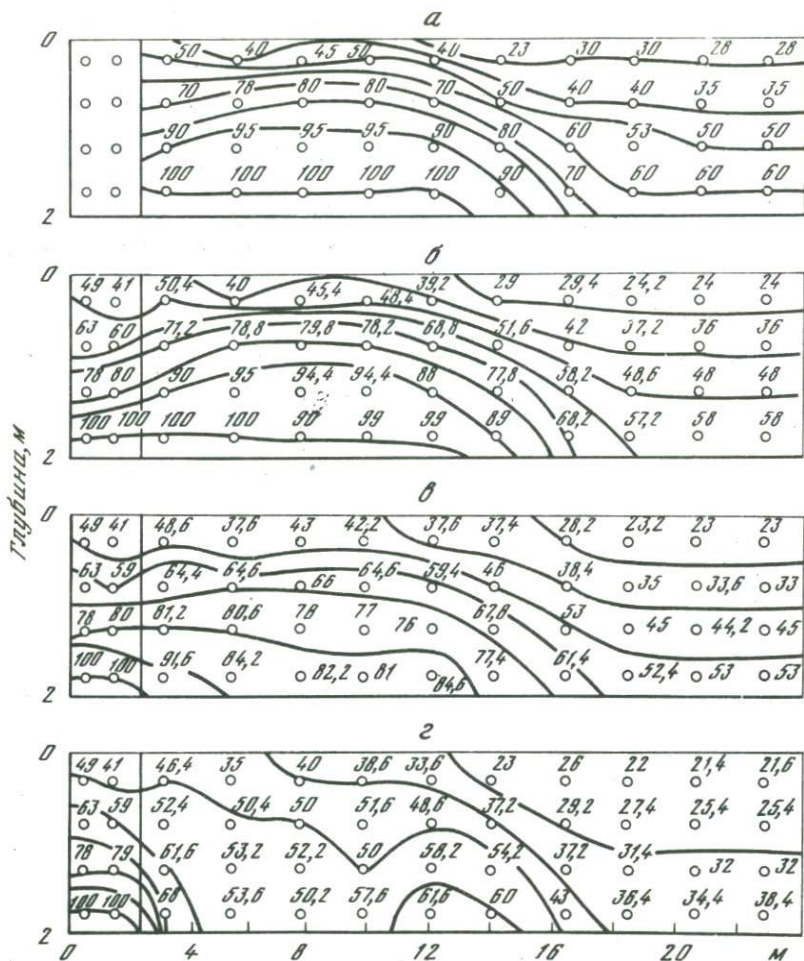 а
0
50 40 45 50 40 23 30 30 28 28
70 78 80 80 70 50 40 40 35 35
90 95 95 95 90 80 60 53 50 50
100 100 100 100 100 90 70 60 60 60
2
б
0
49 41 50,4 40 45,4 48,4 39,2 29 29,4 24,2 24 24
63 60 71,2 78,8 79,8 78,2 68,8 51,6 42 37,2 36 36
78 80 90 95 94,4 94,4 88 77,8 58,2 48,6 48 48
100 100 100 100 90 99 99 89 68,2 57,2 58 58
2
Глубина, м
в
0
49 41 48,6 37,6 43 42,2 37,6 37,4 28,2 23,2 23 23
63 59 64,4 64,6 66 64,6 59,4 46 38,4 35 33,6 33
78 80 81,2 80,6 78 77 76 67,8 53 45 44,2 45
100 100 91,6 84,2 82,2 81 84,6 77,4 61,4 52,4 53 53
2
г
0
49 41 46,4 35 40 38,6 33,6 23 26 22 21,4 21,6
63 59 52,4 50,4 50 51,6 48,6 37,2 29,2 27,4 25,4 25,4
78 79 61,6 53,2 52,2 50 58,2 54,2 37,2 31,4 32 32
100 100 68 53,6 50,2 57,6 61,6 60 43 36,4 34,4 38,4
2
0 4 8 12 16 20 м